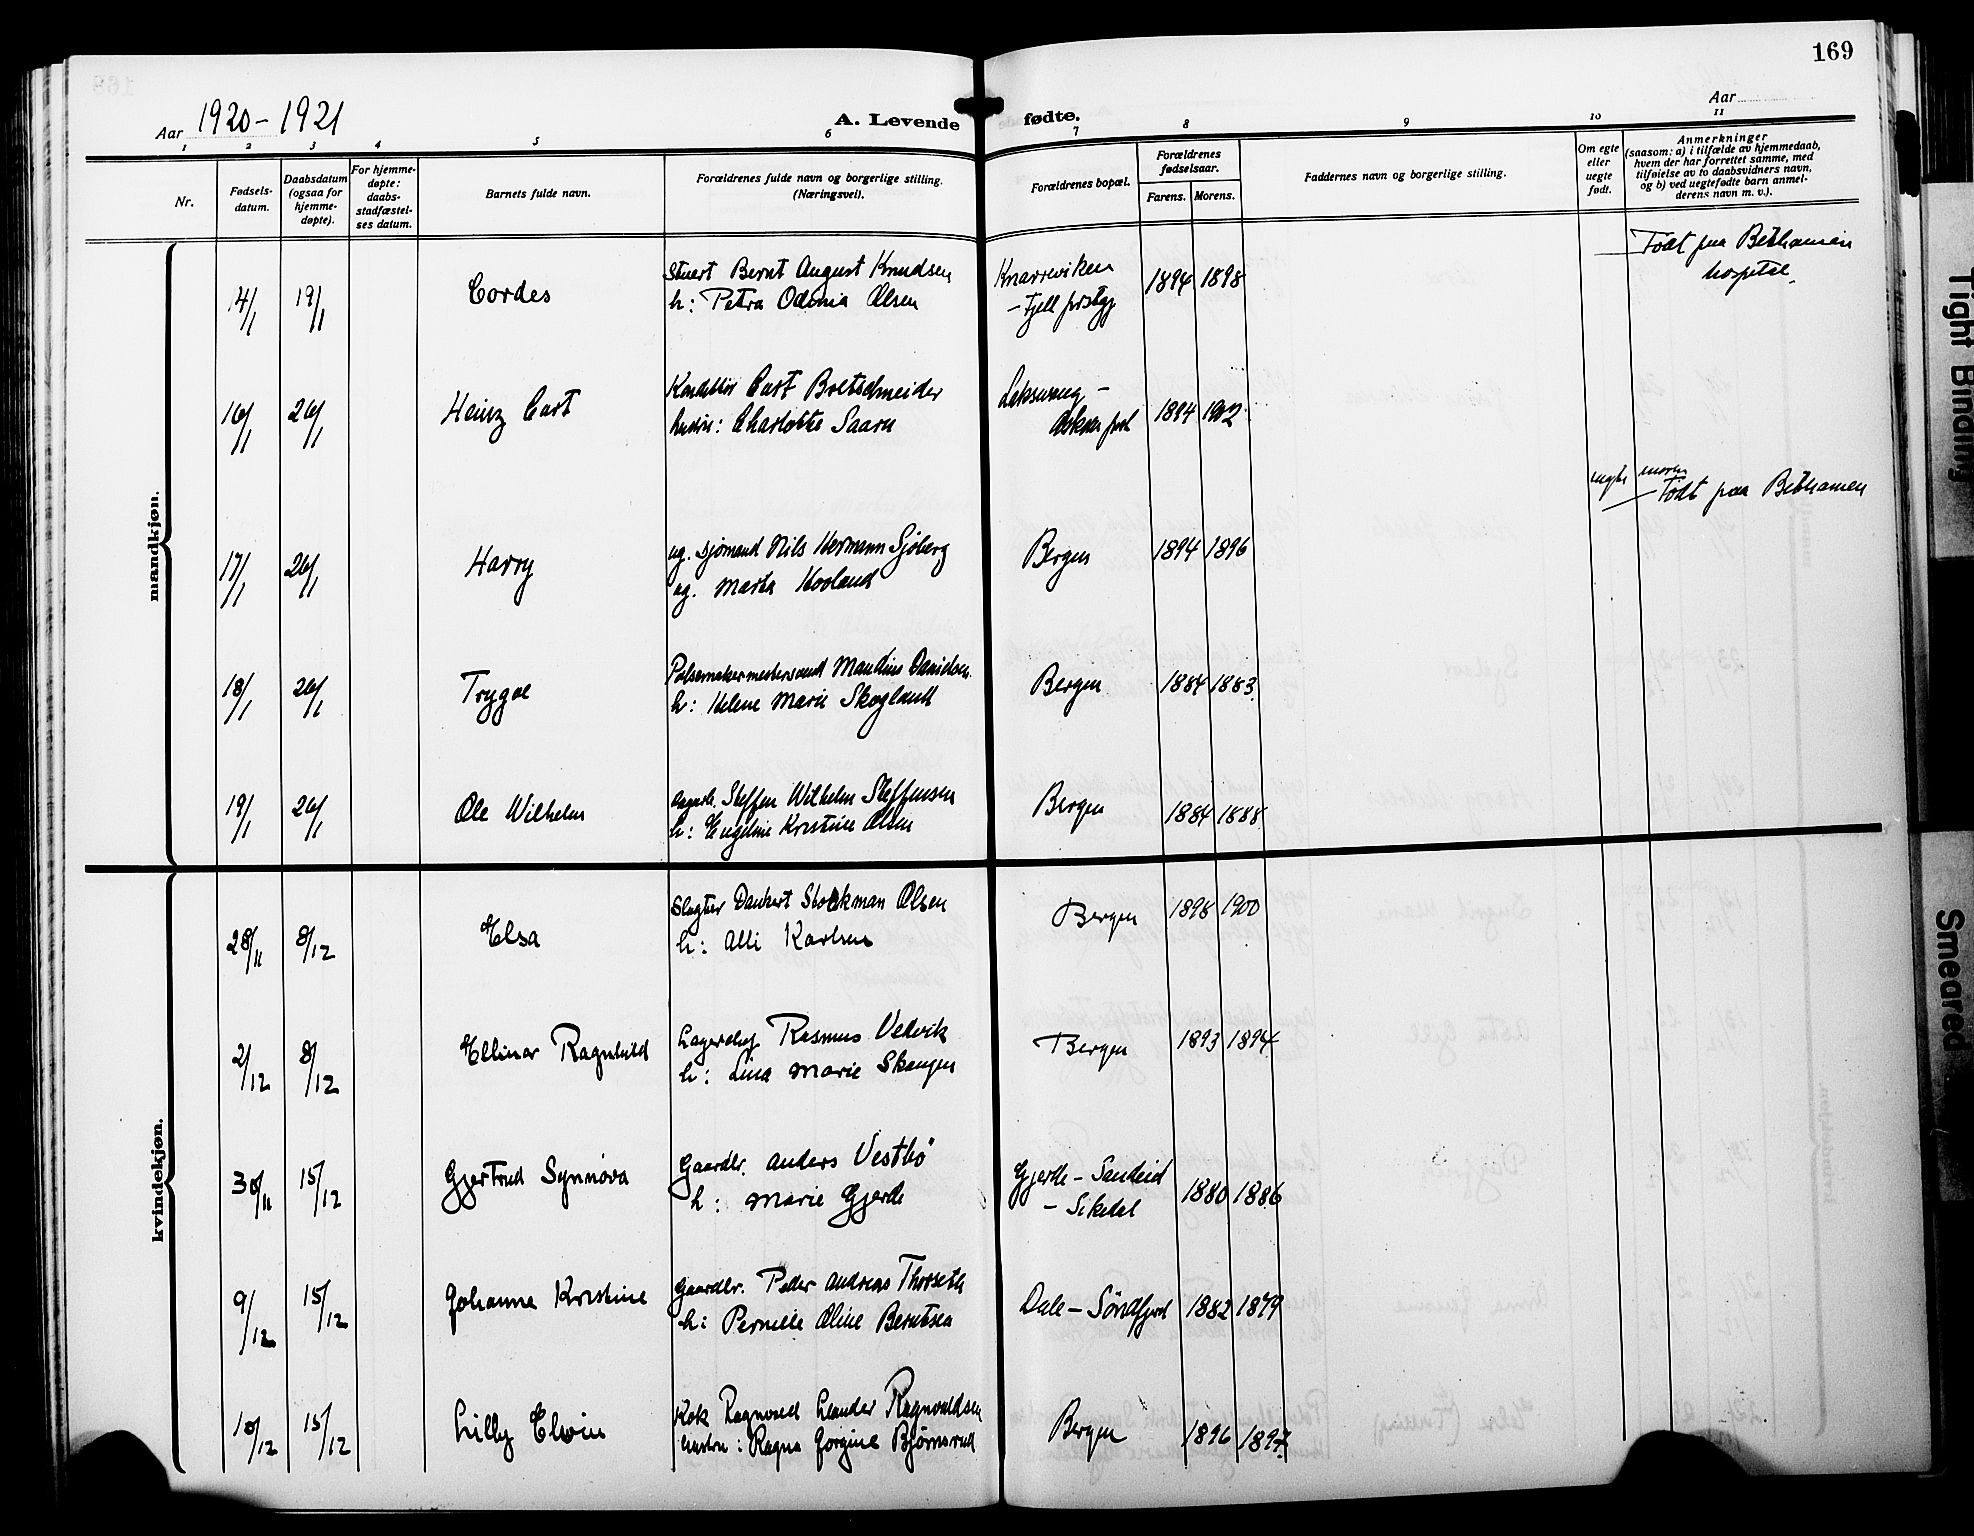 169
Aar 1920-1921
A. Levende fødte.
Aar
1 2 3 4 5 6 7 8 9 10 11
Nr.
Fødsels-
datum.
Daabsdatum
(ogsaa for
hjemme-
døpte).
For hjemme-
døpte:
daabs-
stadfæstel-
ses datum.
Barnets fulde navn.
Forældrenes fulde navn og borgerlige stilling.
(Næringsvei).
Forældrenes bopæl.
Forældrenes
fødselsaar.
Farens. Morens.
Faddernes navn og borgerlige stilling.
Om egte
eller
uegte
født.
Anmerkninger
(saasom: a) i tilfælde av hjemmedaab,
hvem der har forrettet samme, med
tilføielse av to daabsvidners navn,
og b) ved uegtefødte barn anmel-
derens navn m. v.).
mandkjøn.
14/1 19/1 Cordes
Stuert Bernt August Knudsen
h: Petra Odinia Olsen
Knarreviken
- Fjell prstgj
1894 1898
Født paa Bethanien
hospital.
16/1 26/1 Heinz Curt
Konditor Curt Bretschneider
hustru: Charlotte Saarn
Askøen
1894 1902
17/1 26/1 Harry
ug. sjømand Nils Hermann Sjøberg
ug. Marta Hovland
Bergen 1894 1896
uegte moren
Født paa Bethanien
18/1 26/1 Trygve
Pølsemakermestersvend Mandius Danielsen
h: Helene Marie Skoglund
Bergen 1884 1883.
19/1 26/1 Ole Wilhelm
Steffen Wilhelm Steffensen
h: Engeline Kristine Olsen
Bergen 1884 1888
kvindekjøn.
28/11 8/12 Elsa
Slagter Dankert Stockman Olsen
h: Alli Karlsen
Bergen 1898 1900
2/12 8/12 Ellinor Ragnhild
Lagerchef Rasmus Vedvik
h: Lina Marie Skaugen
Bergen 1893 1894
30/11 15/12 Gjertrud Synnøva
Gaardbr. Anders Vestbø
h: Marie Gjerde
Gjerde - Sandeid
- Sikedal
1880 1886
9/12 15/12 Johanna Kristine
Gaardbr. Peder Andreas Thorseth
h: Pernille Oline Berntsen
Dale - Søndfjord 1882 1879
10/12 15/12 Lilly Elvin
Kok Ragnvald Leander Ragnvaldsen
hustru: Ragna Jorgine Bjørnsrud
Bergen 1896 1897.
Tight Binding
Smeared